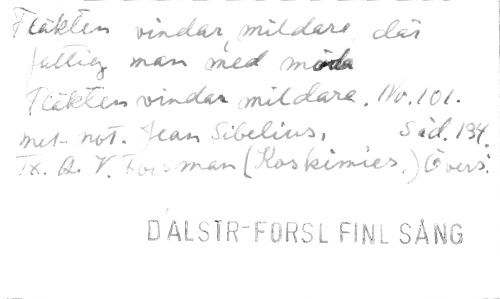 Fläkten vindar, mildare, där
fattig man med möda
Fläkten vindar mildare. No. 101.
met-not. Jean Sibelius, Sid. 134.
Tx. A. V. Forsman (Koskimies.) Övers.
DALSTR-FORSL FINL SÅNG